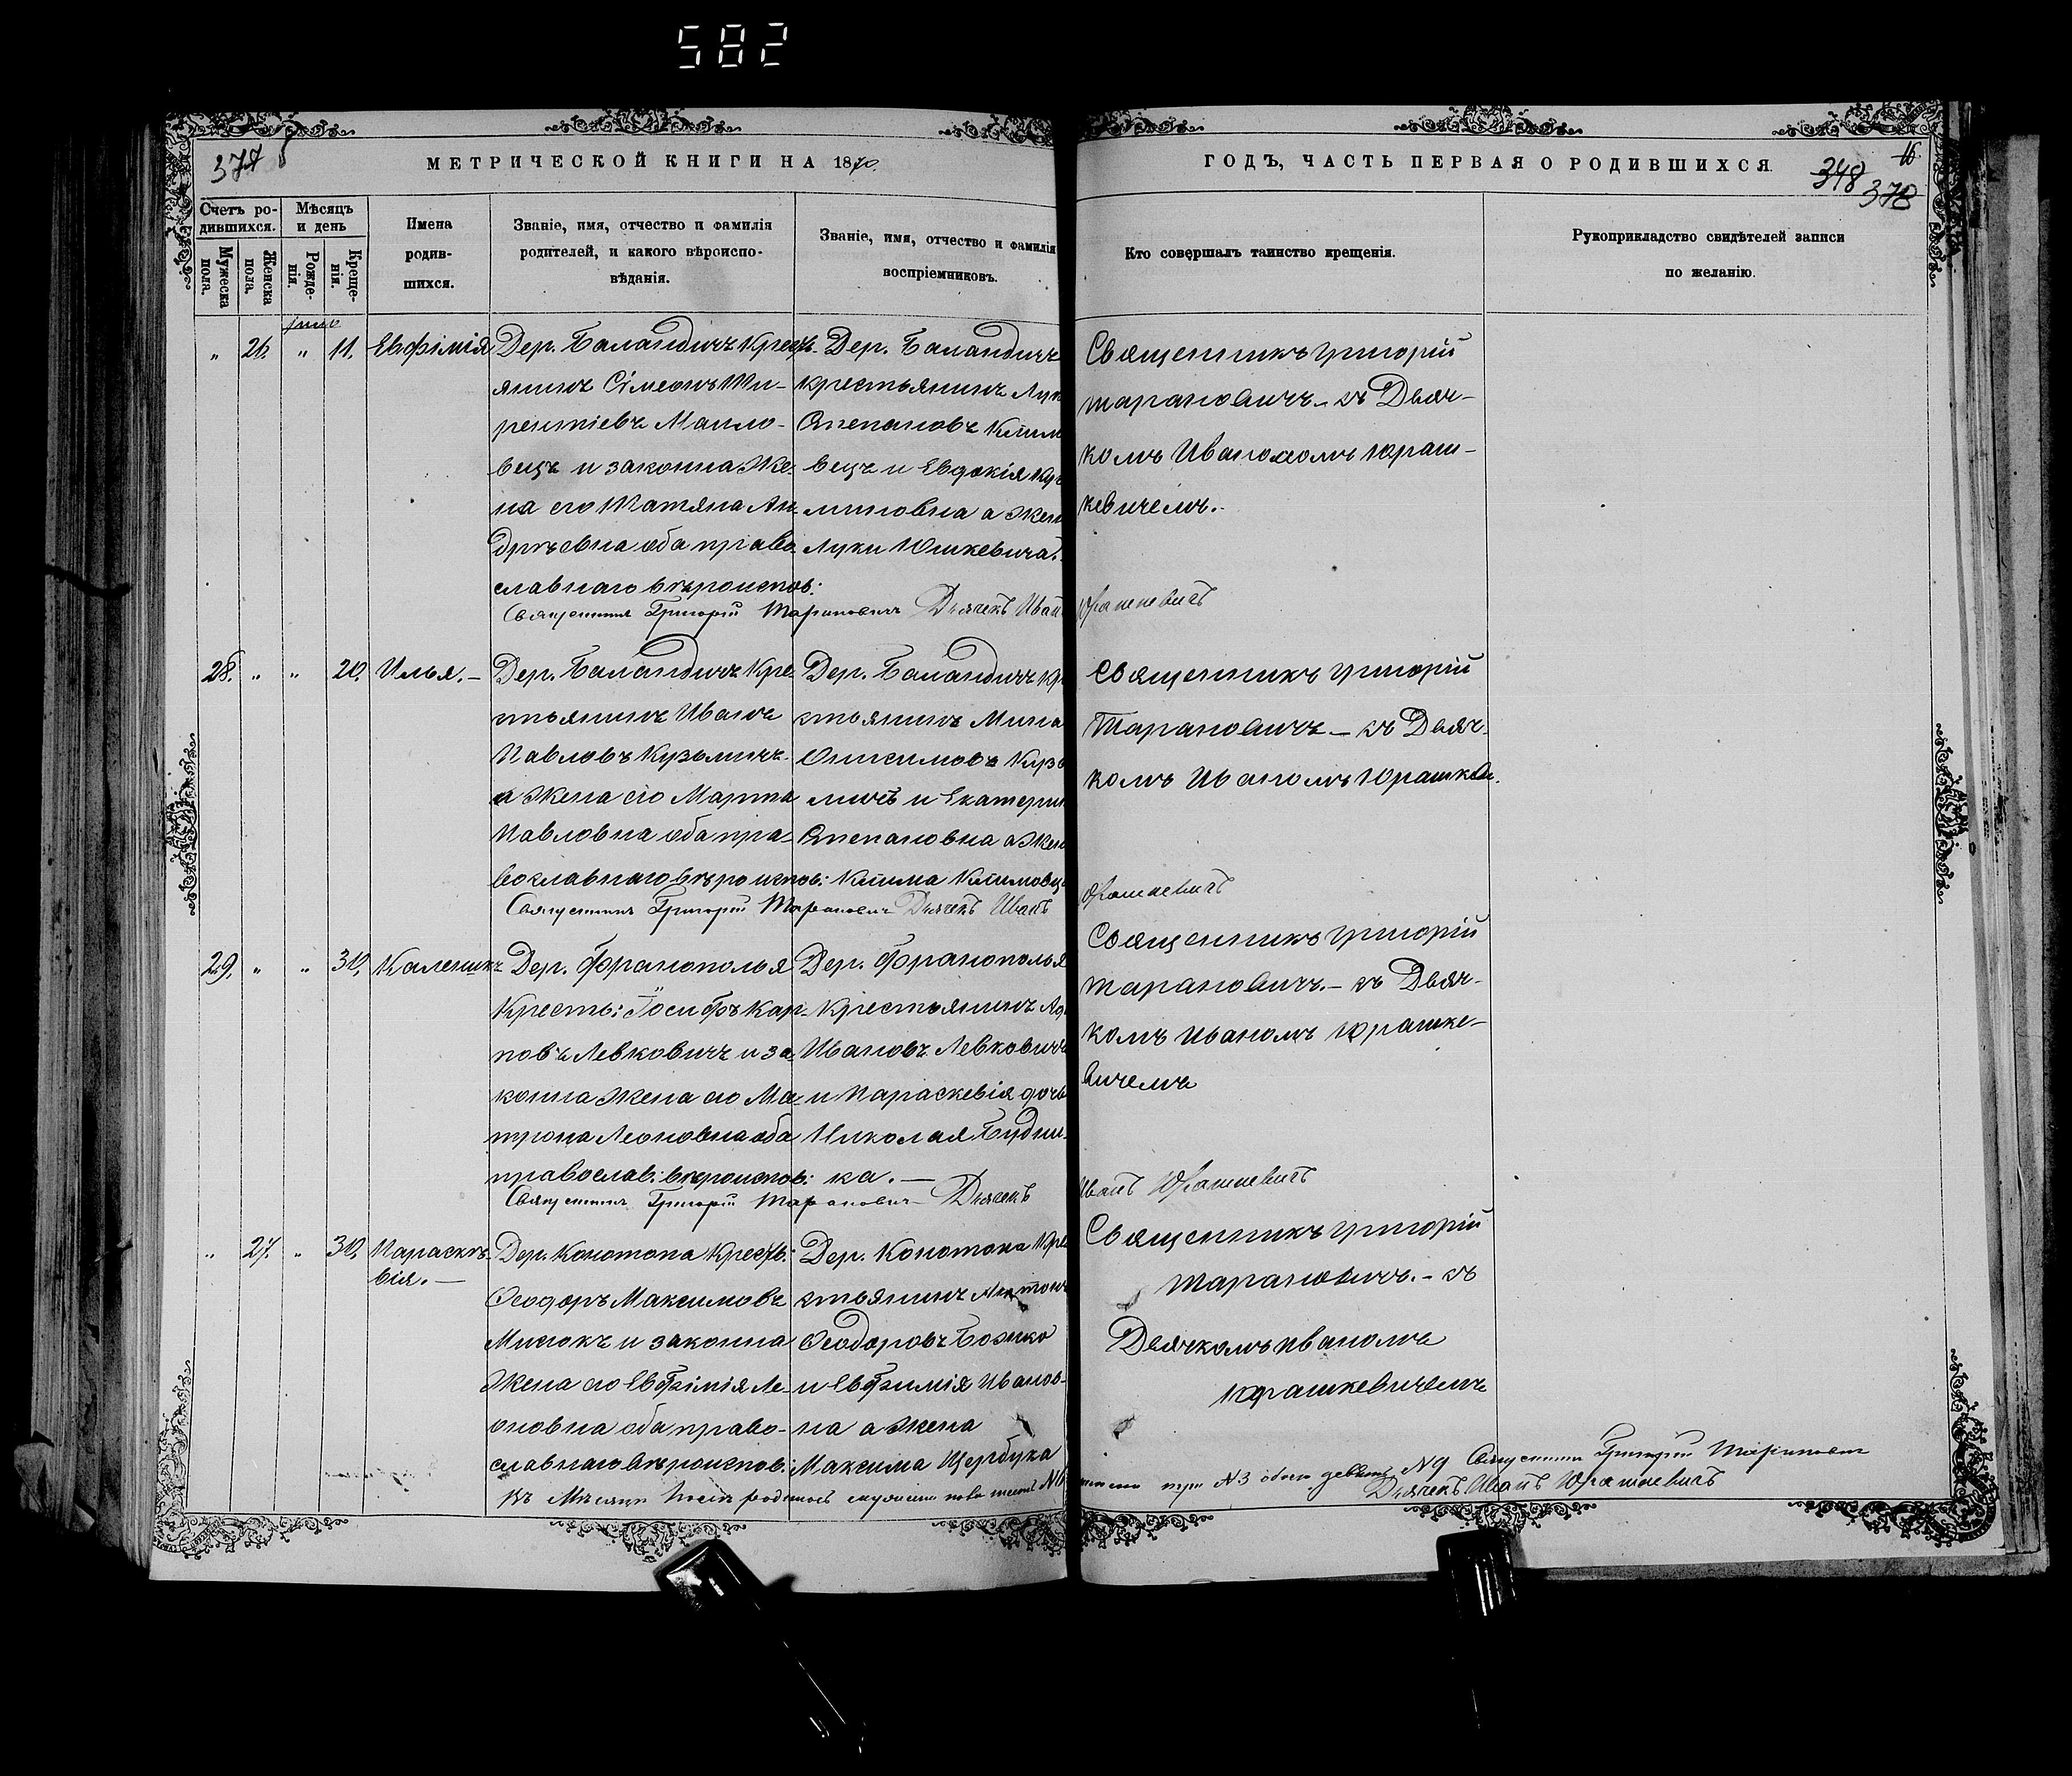 582
377 8
МЕТРИЧЕСКОЙ КНИГИ НА 1870.
ГОДЪ, ЧАСТЬ ПЕРВАЯ О РОДИВШИХСЯ.
16
348
378
Счетъ ро-
дившихся.
Мужеска
пола.
Женска
пола.
Мѣсяцъ
и день
Рожде-
нія.
Креще-
нія.
Имена
родив-
шихся.
Званіе, имя, отчество и фамилія
родителей, и какого вѣроиспо-
вѣданія.
Званіе, имя, отчество и фамилія
воспріемниковъ.
Кто совершалъ таинство крещенія.
Рукоприкладство свидѣтелей записи
по желанію.
" 26. " 11. Евфімія
Дер. Баландичъ Крест-
янинъ Сімеонъ
вецъ и законна же-
на его Татяна Ан-
дрѣевна оба право-
славнаго вѣроиспов:
Дер. Баландичъ
крестьянинъ
Степановъ
вецъ и Евдокія
миновна а
Луки Юшкевича.
Священникъ Григорій
Тарановичъ - съ Дьяч-
комъ Иваномъ Юраш-
кевичемъ.
Священник Григорій Таранович Дьячекъ Иван Юрашкевичъ
28. " " 20. Илья.-
Дер. Баландичъ Кре-
стьянинъ Иванъ
Павловъ Кузьмичъ
а жена его Марта
Павловна оба пра-
вославнаго вѣроиспов:
Дер. Баландичъ
стьянинъ Мина
Онисимовъ
мичъ и
Степановна а
Клима
Священникъ Григорій
Тарановичъ - съ Дьяч-
комъ Иваномъ
Священник Григорій Таранович Дьячекъ Иванъ Юрашкевичъ
29. " " 30. Каленикъ
Дер. Франополья
Кресть: Іосифъ Кар-
повъ Левковичъ и за-
конна жена его Ма-
трона Леоновна оба
православ: вѣроиспов:
Дер. Франополья
Крестьянинъ
Ивановъ Левковичъ
и Параскевія дочь
Николая Будни-
ка.-
Священникъ Григорій
Тарановичъ.- съ Дьяч-
комъ Иваномъ Юрашке-
вичемъ
Священник Григорій Таранович Дьячекъ Иванъ Юрашкевичъ
" 27. " 30. Параскѣ-
вія.-
Дер. Конотопа Кресть:
Ѳеодоръ Максимовъ
Мисюкъ и законна
жена его Евфімія Ле-
оновна оба право-
славнаго вѣроиспов:
Дер. Конотопа
стьянинъ Антонъ
Ѳеодоровъ Божко
и Евфимія Иванов-
на а жена
Максима Щербука
Священникъ Григорій
Тарановичъ.- съ
Дьячкомъ Иваномъ
Юрашкевичемъ
Въ Мѣсяцѣ Іюнѣ родилось мужеска пола шесть №6
три №3 обоего девять №9 Священник Григорій Таранович
Дьячекъ Иванъ Юрашкевичъ